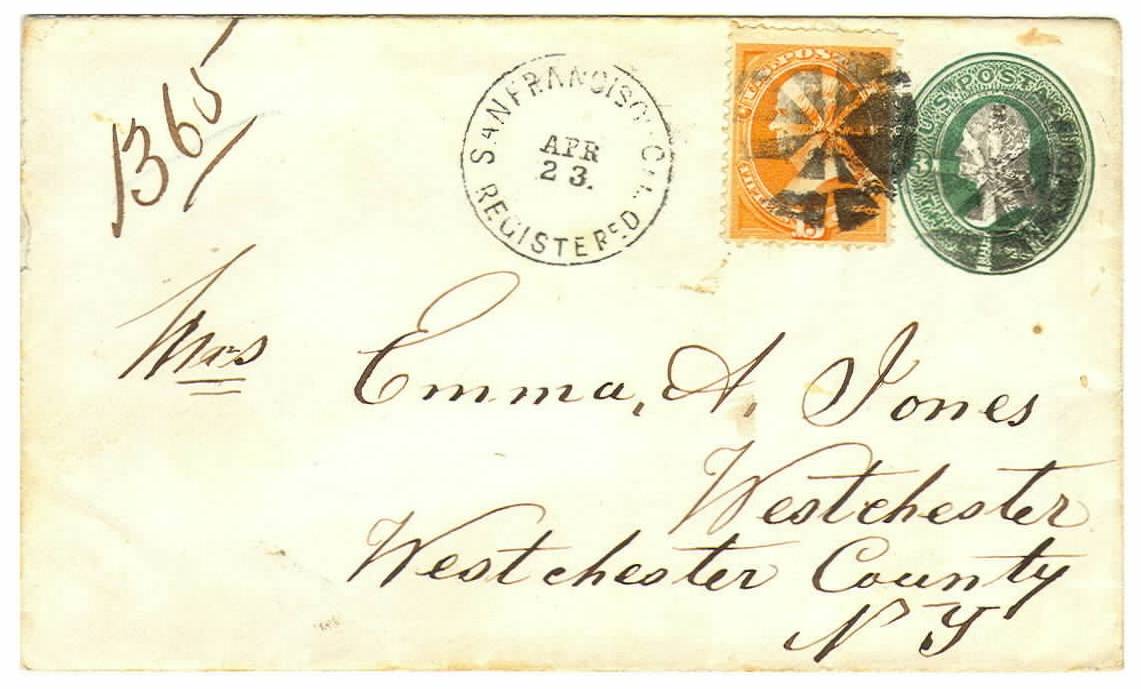 1365
SAN FRANCISCO CAL.
APR
23.
REGISTERED
U.S. POSTA
U.S. POST
3
Mrs Emma, A. Jones
Westchester
Westchester County
N Y